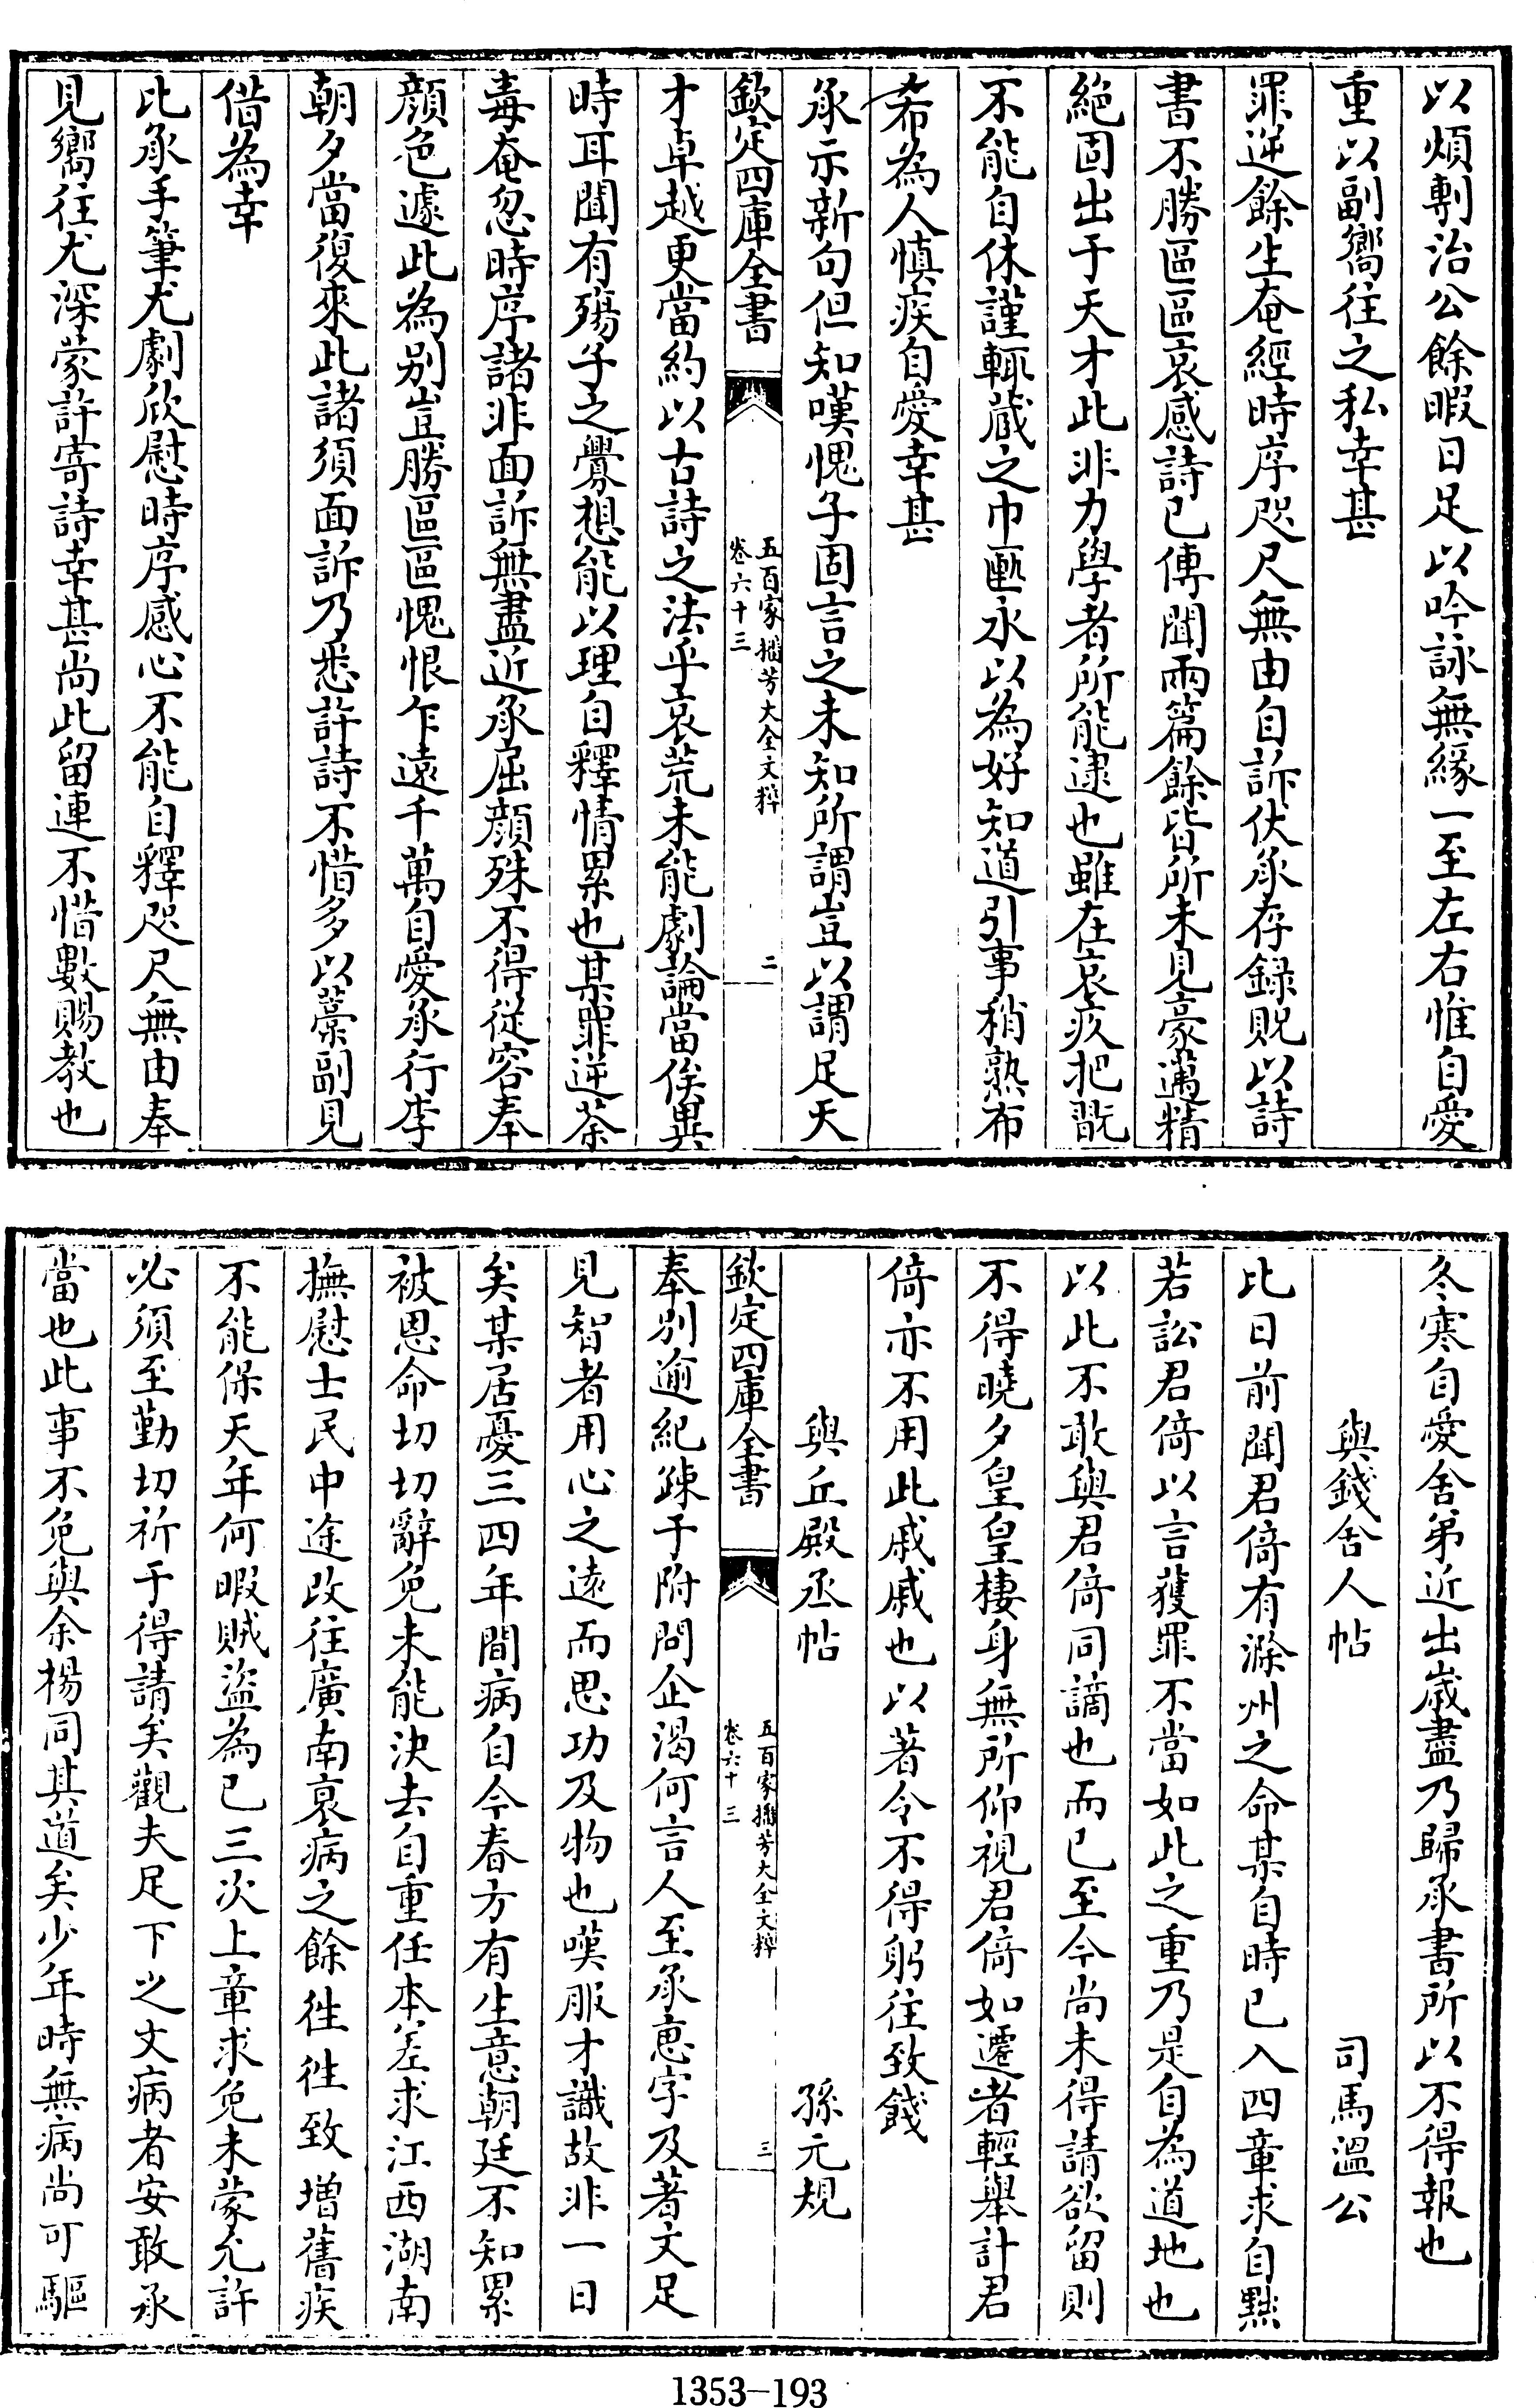 以煩剸治公餘暇日足以吟詠無緣一至左右惟自愛
重以副嚮往之私幸甚
罪逆餘生奄經時序咫尺無由自訴伏承存錄貺以詩
書不勝區區哀感詩已傳聞兩篇餘皆所未見豪邁精
絕固出于天才此非力學者所能逮也雖在哀疚把翫
不能自休謹輒藏之巾匭永以為好知道引事稍熟布
希為人慎疾自愛幸甚
承示新句但知嘆愧子固言之未知所謂豈以謂足天
欽定四庫全書
五百家播芳大全文粹
卷六十三
二
才卓越更當約以古詩之法乎哀荒未能劇論當俟異
時耳聞有殤子之釁想能以理自釋情累也某罪逆荼
毒奄忽時序諸非面訴無盡近承屈顏殊不得從容奉
顏色遽此為別豈勝區區愧恨乍遠千萬自愛承行李
朝夕當復來此諸須面訴乃悉許詩不惜多以藁副見
借為幸
比承手筆尤劇欣慰時序感心不能自釋咫尺無由奉
見嚮往尤深蒙許寄詩幸甚尚此留連不惜數賜教也
冬寒自愛舍弟近出歲盡乃歸承書所以不得報也
與錢舍人帖 司馬溫公
比日前聞君倚有滁州之命某自時已入四章求自黜
若訟君倚以言獲罪不當如此之重乃是自為道地也
以此不敢與君倚同謫也而已至今尚未得請欲留則
不得曉夕皇皇棲身無所仰視君倚如遷者輕舉計君
倚亦不用此戚戚也以著令不得躬往致餞
與丘殿丞帖 孫元規
欽定四庫全書
五百家播芳大全文粹
卷六十三
三
奉別逾紀疎于附問企渴何言人至承惠字及著文足
見智者用心之遠而思功及物也嘆服才識故非一日
矣某居憂三四年間病自今春方有生意朝廷不知累
被恩命切切辭免未能決去自重任本差求江西湖南
撫慰士民中途改往廣南哀病之餘徃徃致增舊疾
不能保天年何暇賊盜為已三次上章求免未蒙允許
必須至勤切祈于得請矣觀夫足下之文病者安敢承
當也此事不免與余楊同其道矣少年時無病尚可驅
1353-193